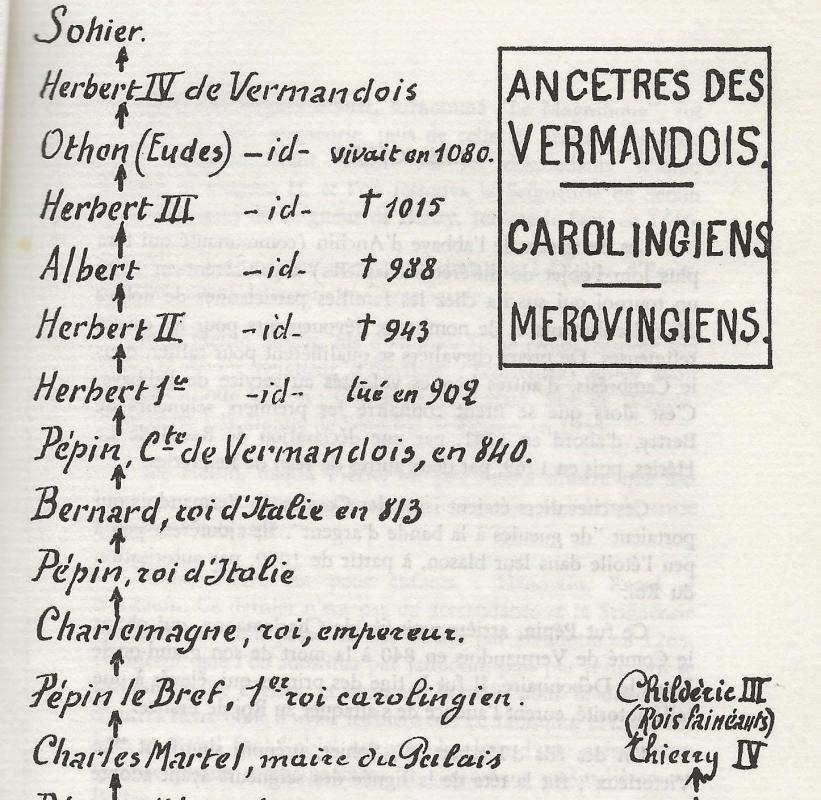 Sohier.
Herbert IV de Vermandois
Othon (Eudes) -id- vivait en 1080.
Herbert III -id- † 1015
Albert -id- † 988
Herbert II -id- † 943
Herbert 1er -id- tüé en 902
Pépin, Cte de Vermandois, en 840.
Bernard, roi d'Italie en 813
Pépin, roi d'Italie
Charlemagne, roi, empereur.
Pépin le Bref, 1er roi carolingien.
Charles Martel, maire du Palais
ANCETRES DES
VERMANDOIS.
CAROLINGIENS
MEROVINGIENS.
Childéric III
(Rois fainéants)
Thierry IV